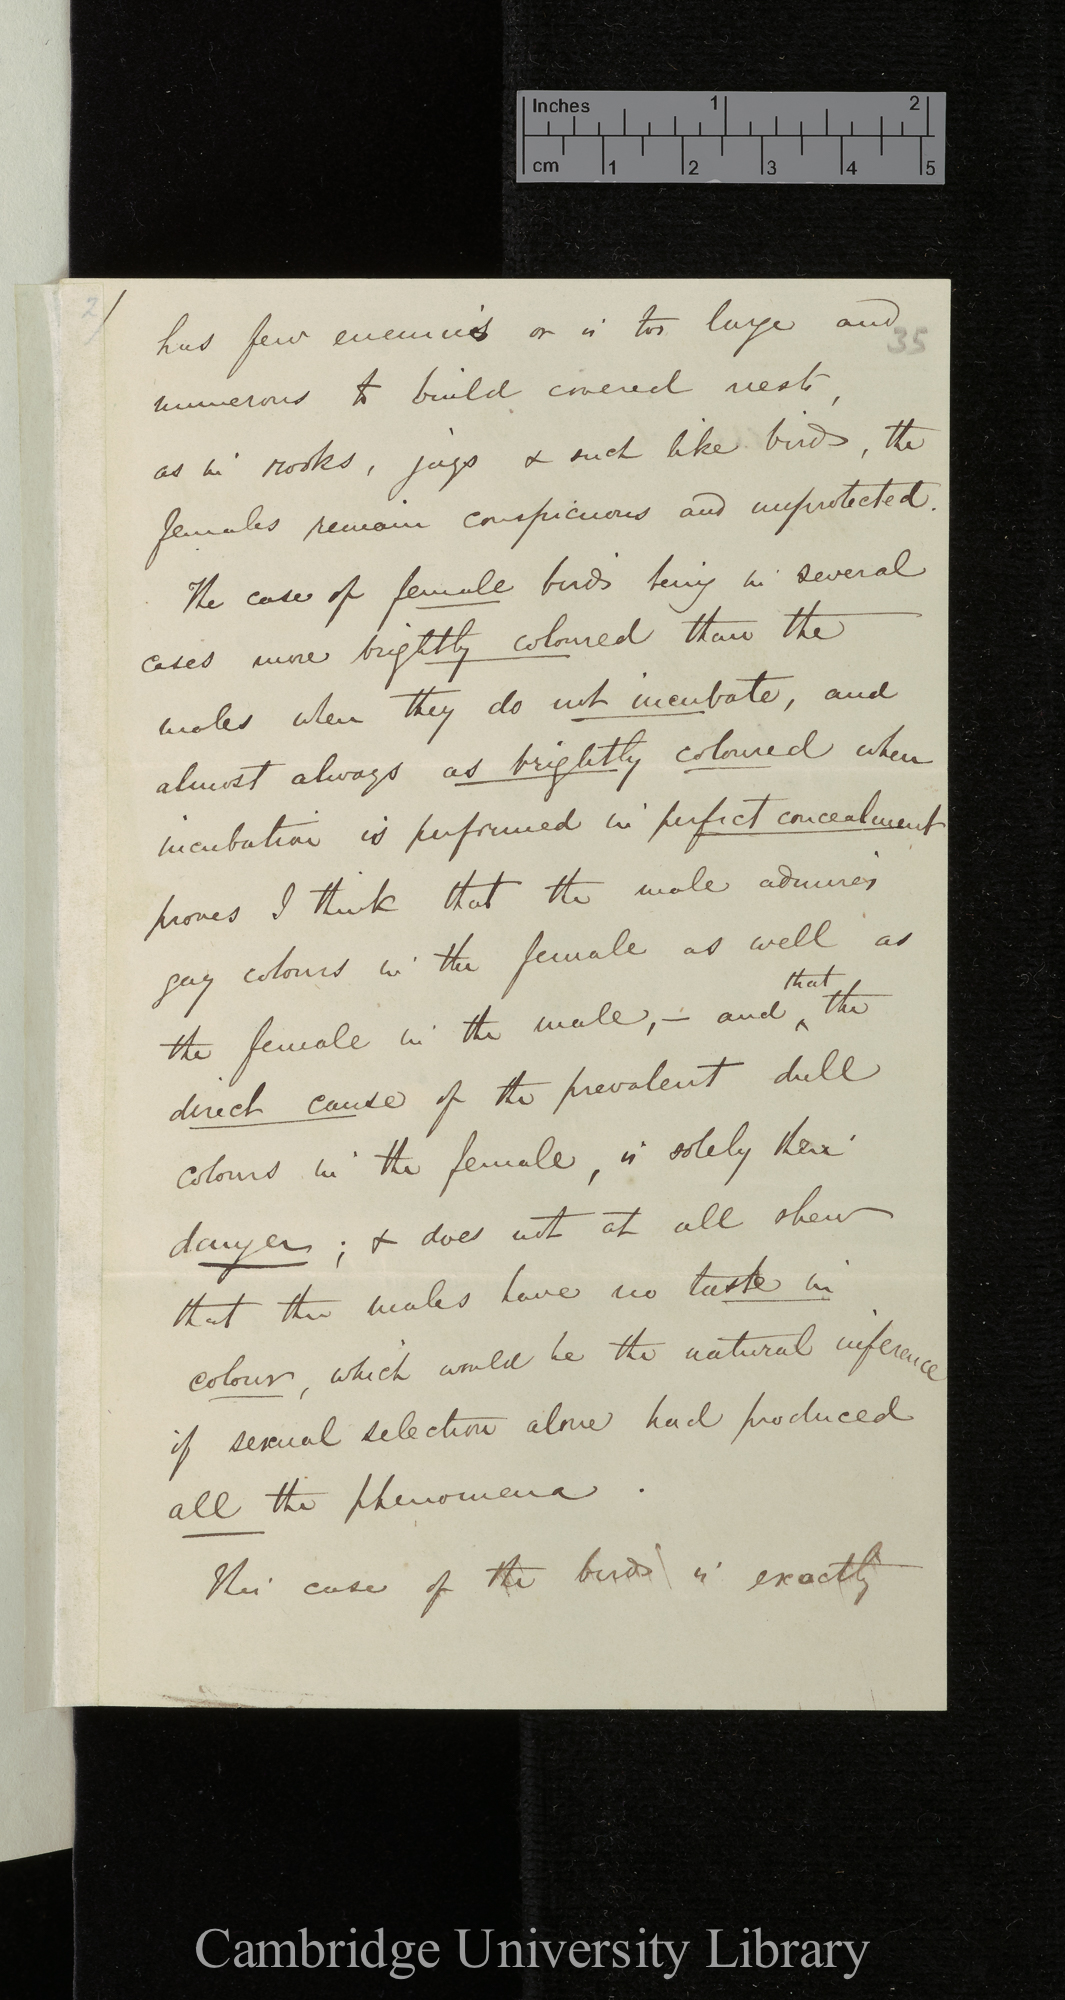 Inches 1 2
cm 1 2 3 4 5
2/
35
has few enemies or is too large and
numerous to build covered nests,
as in rooks, jays & such like birds, the
females remain conspicuous and unprotected.
The case of female birds being in several
cases more brightly coloured than the
males when they do not incubate, and
almost always as brightly coloured when
incubation is performed in perfect concealment
proves I think that the male admires
gay colours in the female as well as
the female in the male,— and that the
direct cause of the prevalent dull
colours in the female, is solely their
danger; & does not at all shew
that the males have no taste in
colour, which would be the natural inference
if sexual selection alone had produced
all the phenomena.
This case of the birds is exactly
Cambridge University Library